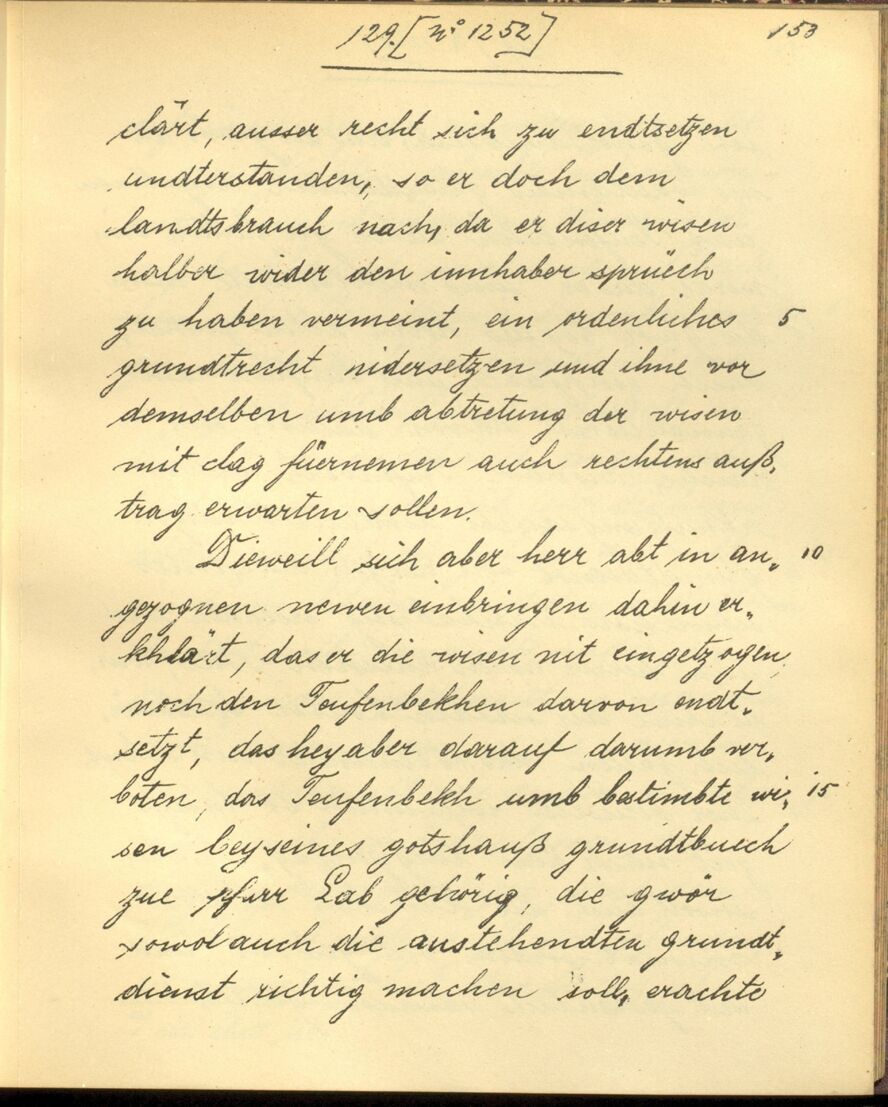 129. [N° 1252]
153
clärt, ausser recht sich zu endtsetzen
undterstanden, so er doch dem
landtsbrauch nach, da er diser wisen
halber wider den innhaber sprüech
zu haben vermeint, ein ordenliches 5
grundtrecht nidersetzen und ihne vor
demselben umb abtretung der wisen
mit clag füernemen auch rechtens auß„
trag erwarten sollen.
Dieweill sich aber herr abt in an„ 10
gezognen newen einbringen dahin er„
khlärt, das er die wisen nit eingetzogen,
noch den Teufenbekhen darvon endt„
setzt, das hey aber darauf darumb ver„
boten, das Teufenbekh umb bestimbte wi„ 15
sen bey seines gotshauß grundtbuech
zue pfarr Lab gehörig, die gwör
sowol auch die austehendten grundt„
dienst richtig machen soll, erachte